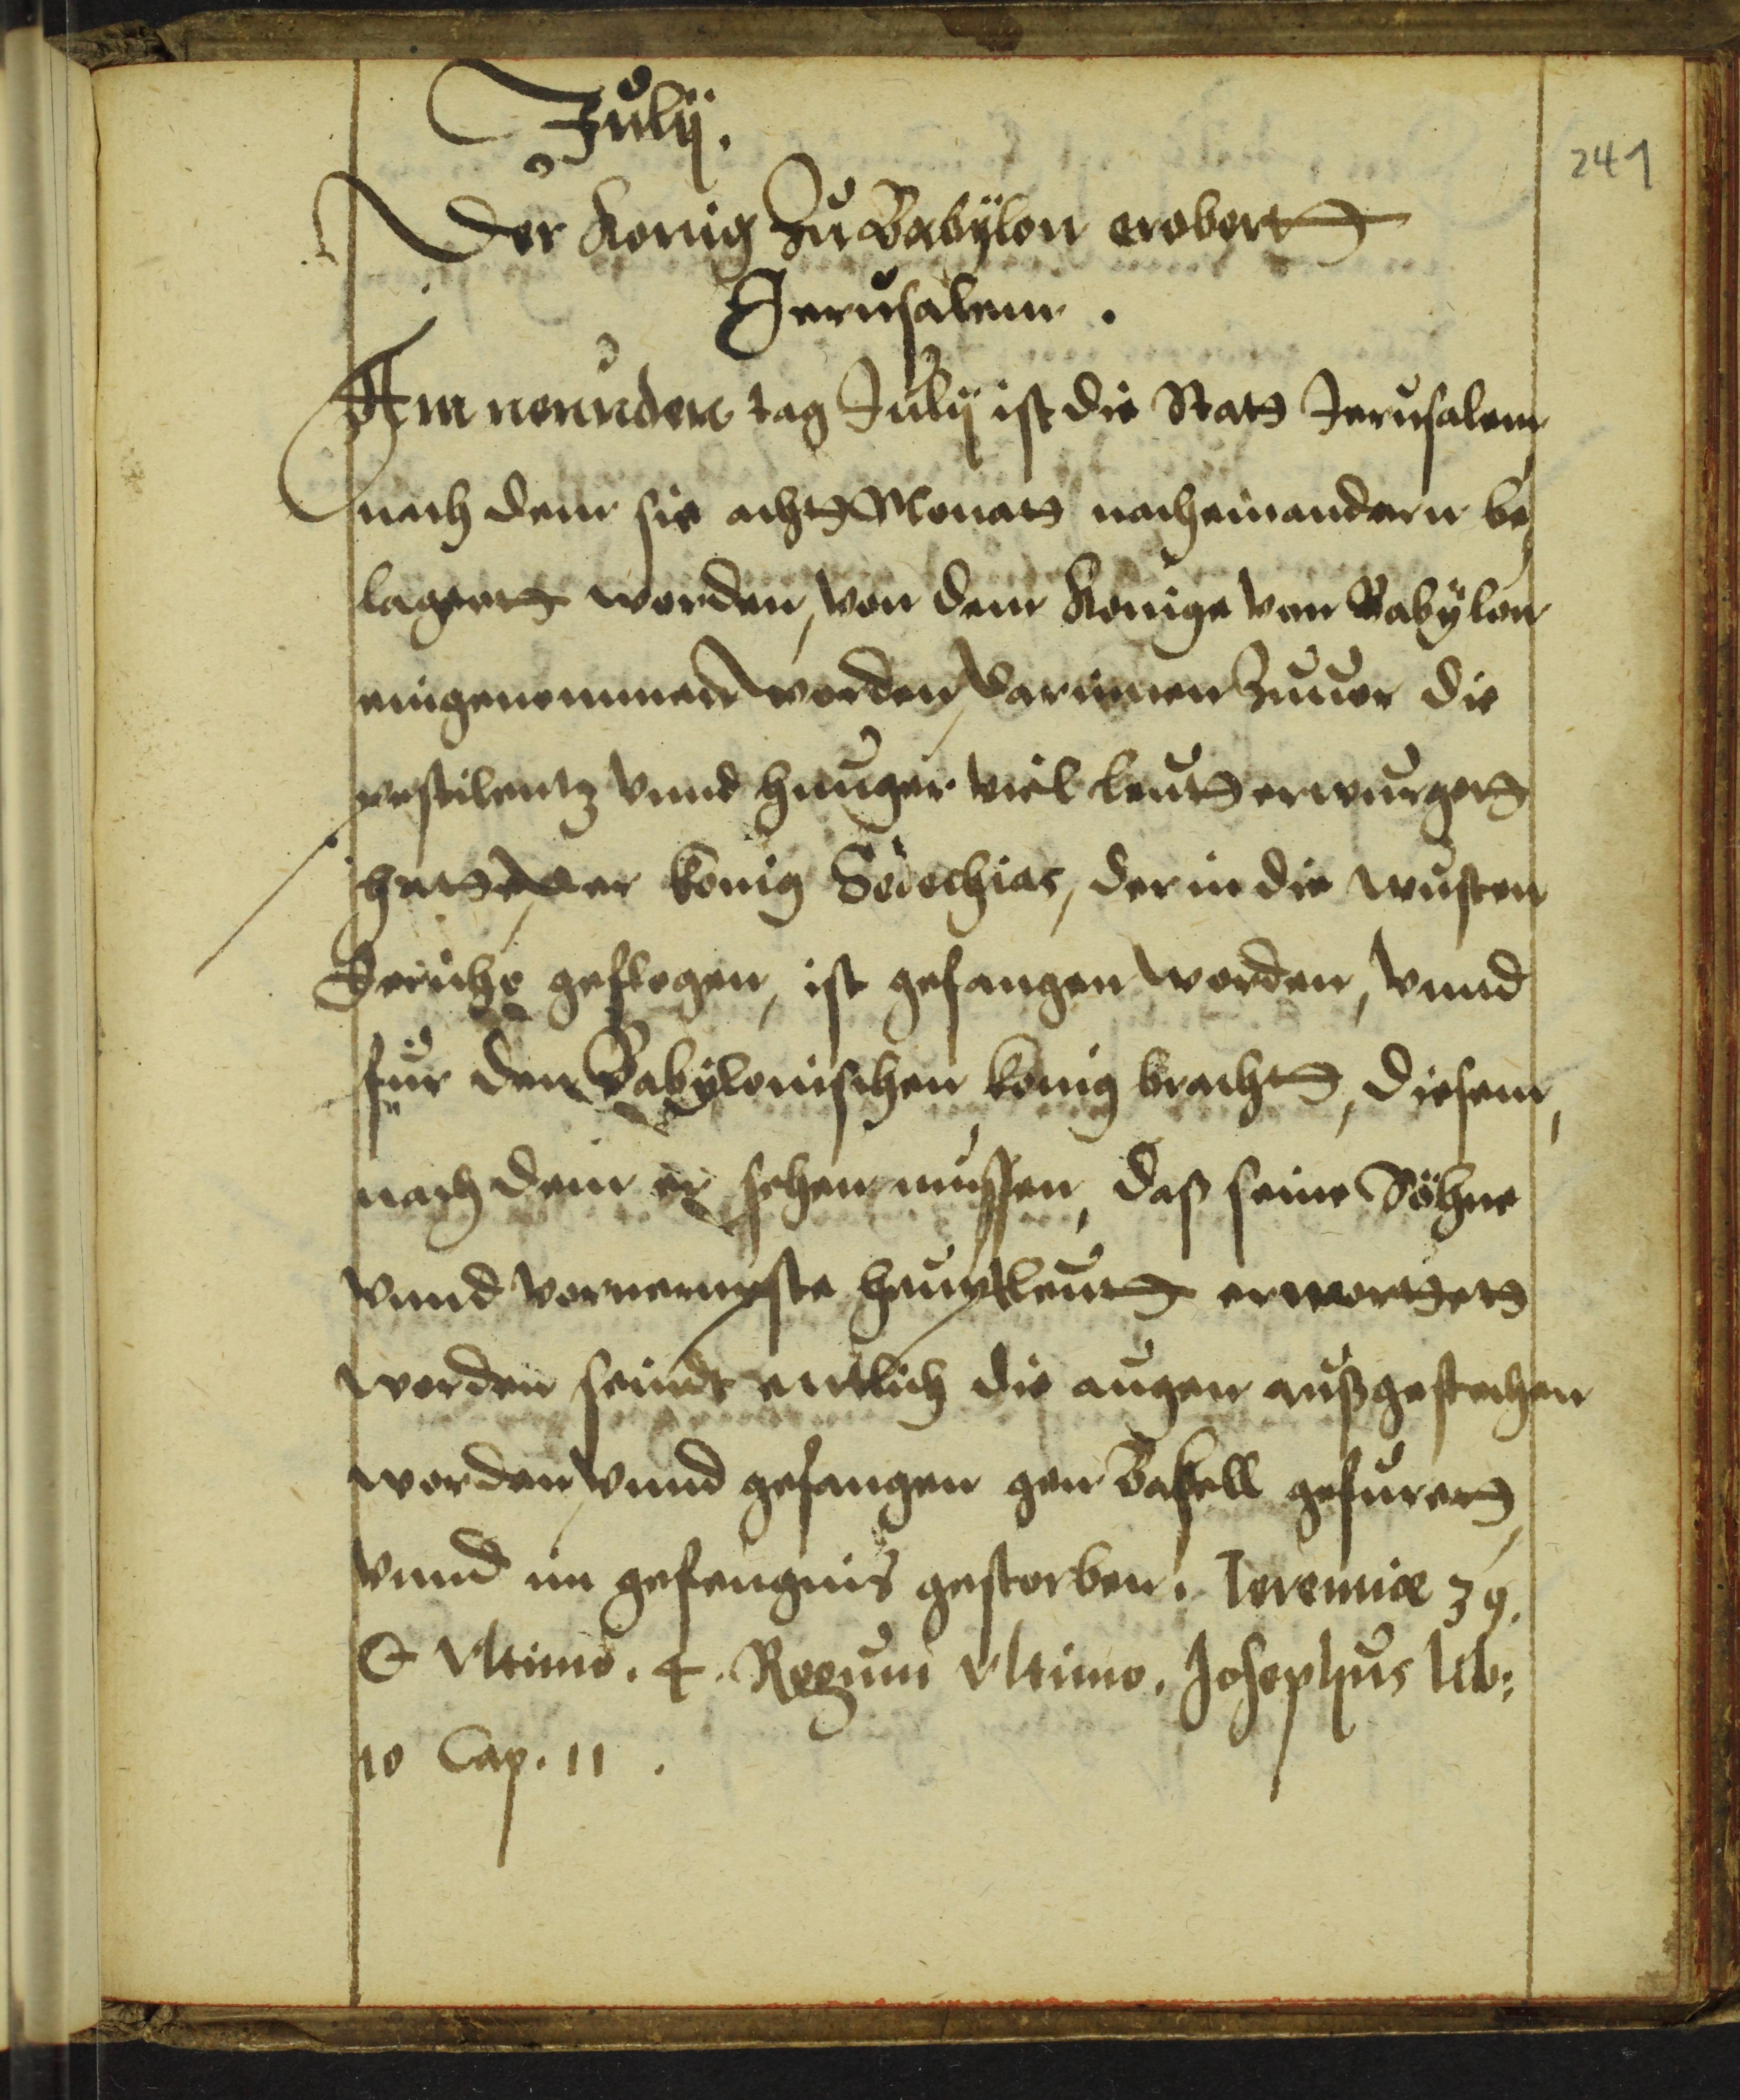 Julÿ.
241
Der Konig zu Babÿlon erobert
Jerusalem.
Am neunden tag Julÿ ist die Statt Jerusalem
nach dem sie acht Monat nacheinandern be
lagert worden, von dem Konige von Babÿlon
eingenommen worden, darinnen zuuor die
pestilentz vnnd hunger viel leut erwurgett
hatt, der konig Sedechias, der in die wusten
Jericho geflogen, ist gefangen worden, vnnd
fur den Babÿlonischen konig bracht, diesem,
nach dem er sehen mussen, daß seine Söhne
vnnd vornempste hauptleutt ermortett
worden seindt entlich die augen außgestochen
worden, vnnd gefangen gen Babell gefurett,
vnnd im gefengnis gestorben. Ieremiæ 39.
& vltimo. 4. Regum vltimo. Josephus lib:
10 Cap. 11.